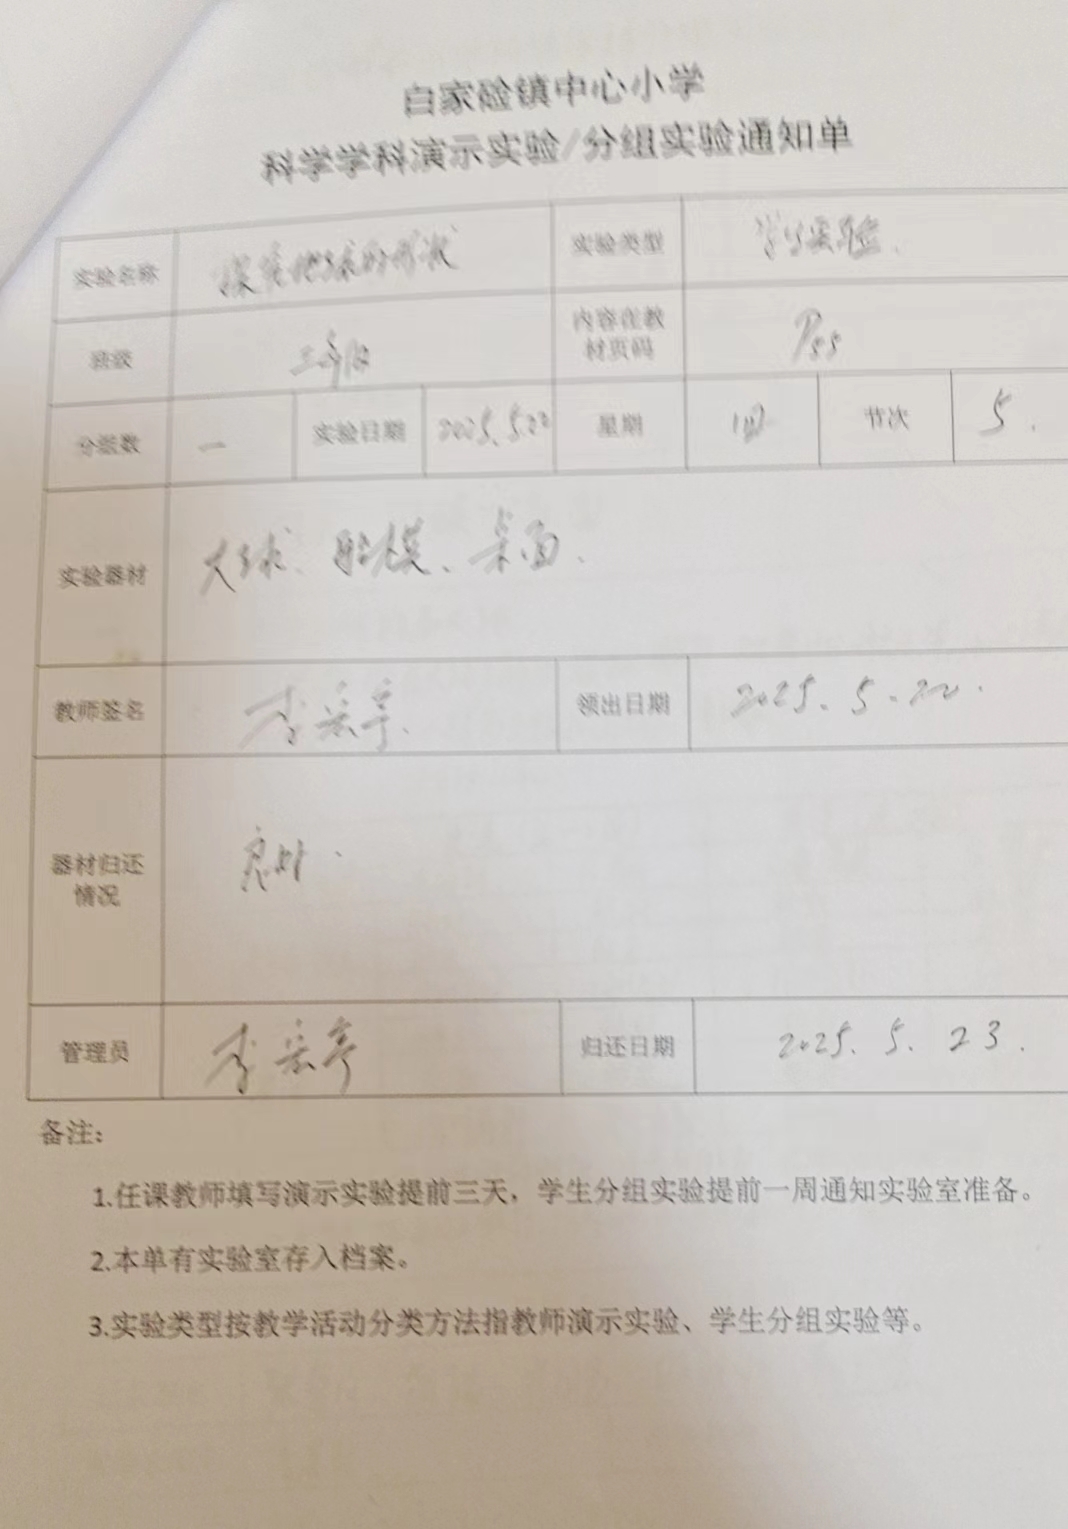 白家硷镇中心小学
科学学科演示实验/分组实验通知单
实验名称 探究地球的形状 实验类型 学生实验.
班级 三年级 内容在教材页码 P55
分组数 一 实验日期 2025.5.22 星期 四 节次 5.
实验器材 大球、船模、桌面.
教师签名 李 领出日期 2025.5.22.
器材归还情况 良好.
管理员 李 归还日期 2025.5.23.
备注:
1.任课教师填写演示实验提前三天，学生分组实验提前一周通知实验室准备。
2.本单有实验室存入档案。
3.实验类型按教学活动分类方法指教师演示实验、学生分组实验等。